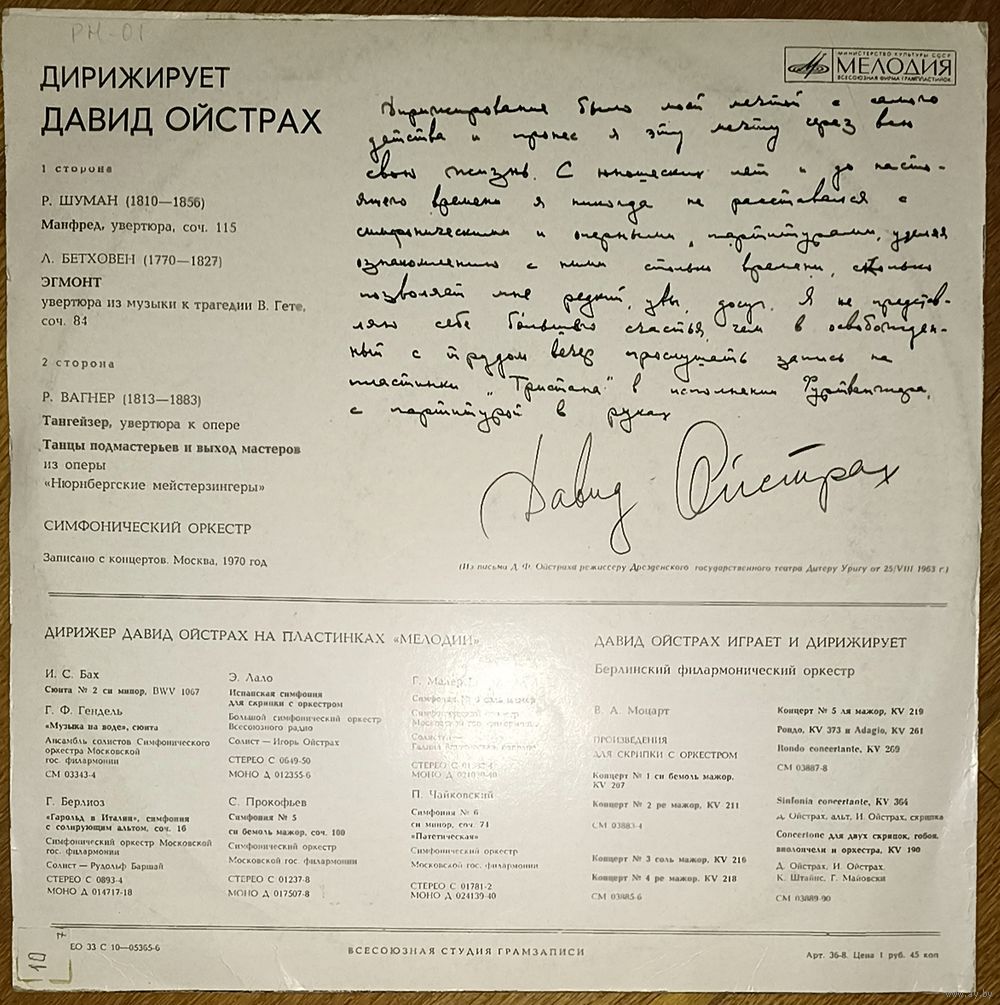 РН-01
ДИРИЖИРУЕТ
ДАВИД ОЙСТРАХ
1 сторона
Р. ШУМАН (1810—1856)
Манфред, увертюра, соч. 115
Л. БЕТХОВЕН (1770—1827)
ЭГМОНТ
увертюра из музыки к трагедии В. Гете,
соч. 84
2 сторона
Р. ВАГНЕР (1813—1883)
Тангейзер, увертюра к опере
Танцы подмастерьев и выход мастеров
из оперы
«Нюрнбергские мейстерзингеры»
СИМФОНИЧЕСКИЙ ОРКЕСТР
Записано с концертов. Москва, 1970 год
МИНИСТЕРСТВО КУЛЬТУРЫ СССР
МЕЛОДИЯ
ВСЕСОЮЗНАЯ ФИРМА ГРАМПЛАСТИНОК
Дирижирование было моей мечтой с самого
детства и пронес я эту мечту через всю
свою жизнь. С юношеских лет и до насто-
ящего времени я никогда не расставался с
симфоническими и оперными партитурами, уделяя
ознакомлению с ними столько времени, сколько
позволяет мне редкий, увы, досуг. Я не представ-
ляю себе большего счастья, чем в освобожден-
ный с трудом вечер прослушать запись на
пластинки „Тристана" в исполнении Фуртвенглера,
с партитурой в руках
Давид Ойстрах
(Из письма Д. Ф. Ойстраха режиссеру Дрезденского государственного театра Дитеру Уригу от 25/VIII 1963 г.)
ДИРИЖЕР ДАВИД ОЙСТРАХ НА ПЛАСТИНКАХ «МЕЛОДИИ»
И. С. Бах
Сюита № 2 си минор, BWV 1067
Г. Ф. Гендель
«Музыка на воде», сюита
Ансамбль солистов Симфонического
оркестра Московской
гос. филармонии
СМ 03343-4
Г. Берлиоз
«Гарольд в Италии», симфония
с солирующим альтом, соч. 16
Симфонический оркестр Московской
гос. филармонии
Солист — Рудольф Баршай
СТЕРЕО С 0893-4
МОНО Д 014717-18
Э. Лало
Испанская симфония
для скрипки с оркестром
Большой симфонический оркестр
Всесоюзного радио
Солист — Игорь Ойстрах
СТЕРЕО С 0649-50
МОНО Д 012355-6
С. Прокофьев
Симфония № 5
си бемоль мажор, соч. 100
Симфонический оркестр
Московской гос. филармонии
СТЕРЕО С 01237-8
МОНО Д 017507-8
Г. Малер
Симфония № 4 соль мажор
Симфонический оркестр
Московской гос. филармонии
СТЕРЕО С
МОНО Д
П. Чайковский
Симфония № 6
си минор, соч. 74
«Патетическая»
Симфонический оркестр
Московской гос. филармонии
СТЕРЕО С 01781-2
МОНО Д 024139-40
ДАВИД ОЙСТРАХ ИГРАЕТ И ДИРИЖИРУЕТ
Берлинский филармонический оркестр
В. А. Моцарт
ПРОИЗВЕДЕНИЯ
ДЛЯ СКРИПКИ С ОРКЕСТРОМ
Концерт № 1 си бемоль мажор,
KV 207
Концерт № 2 ре мажор, KV 211
СМ 03883-4
Концерт № 3 соль мажор, KV 216
Концерт № 4 ре мажор, KV 218
СМ 03885-6
Концерт № 5 ля мажор, KV 219
Рондо, KV 373 и Adagio, KV 261
Rondo concertante, KV 269
СМ 03887-8
Sinfonia concertante, KV 364
Д. Ойстрах, альт, И. Ойстрах, скрипка
Concertone для двух скрипок, гобоя,
виолончели и оркестра, KV 190
Д. Ойстрах, И. Ойстрах,
К. Штайнс, Г. Майовски
СМ 03889-90
10
ЕО 33 С 10—05365-6
ВСЕСОЮЗНАЯ СТУДИЯ ГРАМЗАПИСИ
Арт. 36-8. Цена 1 руб. 45 коп
www.ay.by